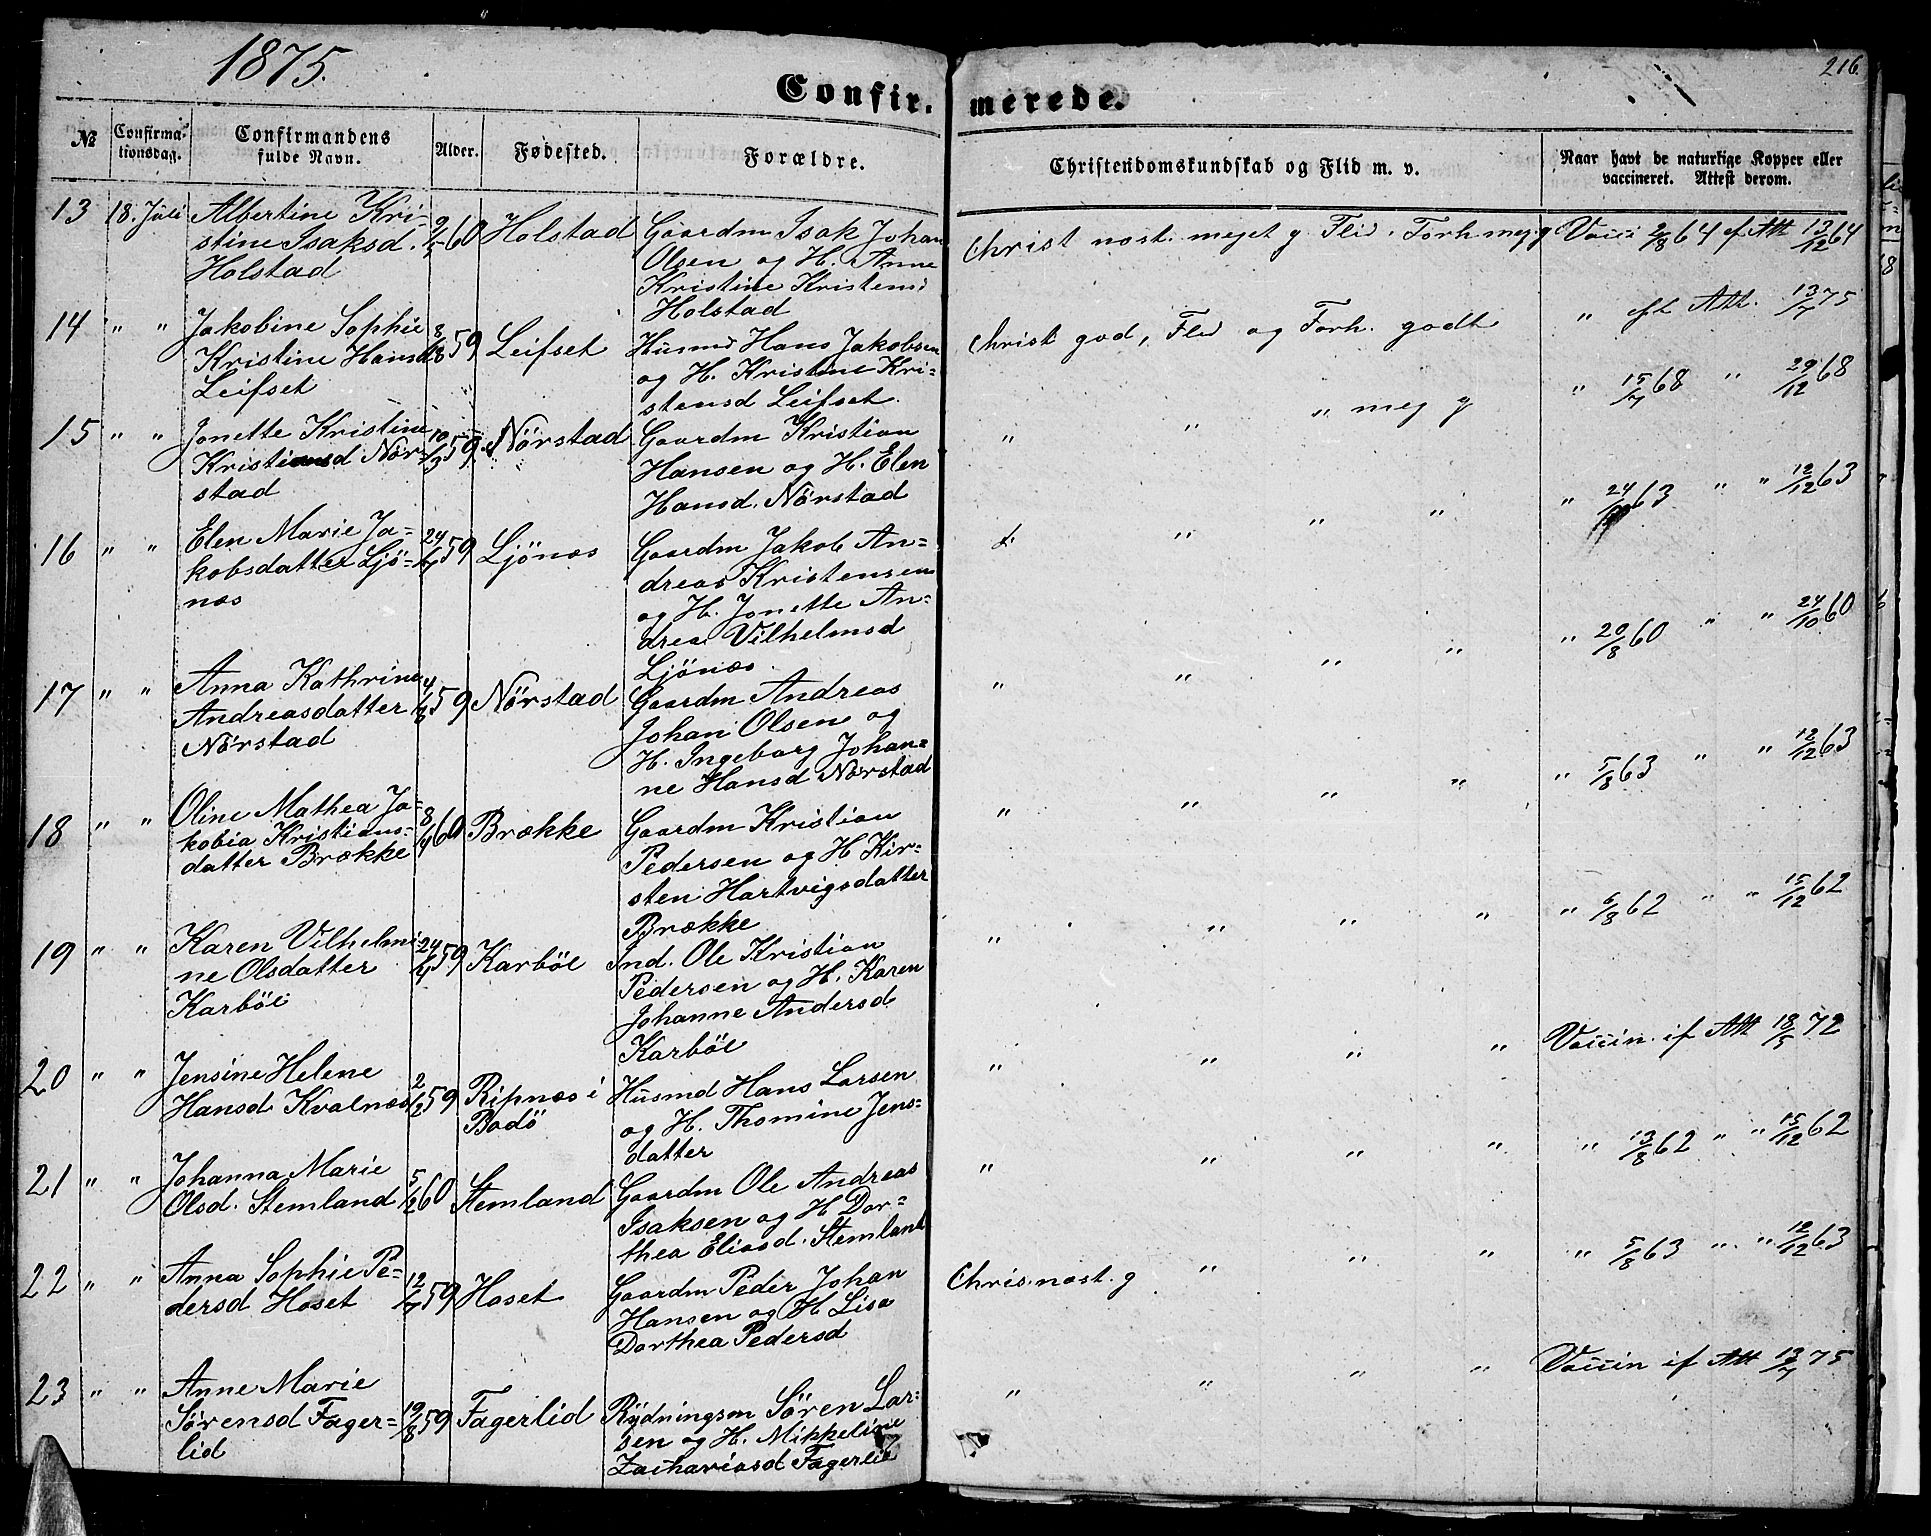 1875.
216.
Confir. merede.
№
Confirma-
tionsdag.
Confirmandens
fulde Navn.
Alder.
Fødested.
Forældre.
Christendomskundskab og Flid m. v.
Naar havt de naturlige Kopper eller
vaccineret. Attest derom.
13 18. Juli Albertine Kri-
stine Isaksd.
Holstad
60 Holstad
Gaardm Isak Johan
Olsen og H. Anne
Kristine Kristensd
Holstad
Christ næst. meget g. Flid. Forh meg. g
Vacci 2/8 64 ef Att 13/12 64
14 " " Jakobine Sophie
Kristine Hansd
Leifset
59 Leifset
Husmd Hans Jakobsen
og H. Kristine Kri-
stensd Leifset.
Christ god, Flid og Forh. godt
" eft Att. 13/7 75
15 " " Jonette Kristine
Kristiansd Nør-
stad
59 Nörstad
Gaardm Kristian
Hansen og H. Elen
Hansd. Nörstad
" " " meg g
" 15/7 68 " 29/12 68
16 " " Elen Marie Ja-
kobsdatter Ljö-
næs
59 Ljönæs
Gaardm Jakob An-
dreas Kristensen
og H. Jonette An-
drea Vilhelmsd
Ljönæs.
" " "
" 63 " " 12/12 63
17 " " Anna Kathrine
Andreasdatter
Nörstad
59 Nörstad
Gaardm Andreas
Johan Olsen og
H. Ingeborg Johan-
ne Hansd Nörstad
" " " "
" 20/8 60 " " 24/10 60
18 " " Oline Mathea Ja-
kobia Kristians-
datter Brække
8/4 60 Brække
Gaardm Kristian
Pedersen og H Kir-
sten Hartvigsdatter
Brække
" " " "
" 5/8 63 " " 12/12 63
19 " " Karen Vilhelmi-
ne Olsdatter
Karböl
59 Karböl
Ind. Ole Kristian
Pedersen og H. Karen
Johanne Andersd
Karböl
" " " "
" 6/8 62 " " 15/12 62
20 " " Jensine Helene
Hansd Kvalnæs
59 Ripnæs i
Bodö
Husmd Hans Larsen
og H. Thomine Jens-
datter
" " " "
Vaccin. if Att 18/5 72
21 " " Johanna Marie
Olsd. Stemland
5/2 60 Stemland
Gaardm Ole Andreas
Isaksen og H Dor-
thea Eliasd. Stemland
" " " "
" 13/8 62 " " 15/12 62
22 " " Anna Sophie Pe-
dersd Hoset
12/7 59 Hoset
Gaardm Peder Johan
Hansen og H Lisa
Dorthea Pedersd
Chris. næst. g " " "
" 5/8 63 " " 12/12 63
23 " " Anne Marie
Sörensd Fager-
lid
19/8 59 Fagerlid
Rydningsm Sören Lar-
sen og H. Mikkeline
Zachariasd Fagerlid
" " " "
Vaccin if Att 13/7 75